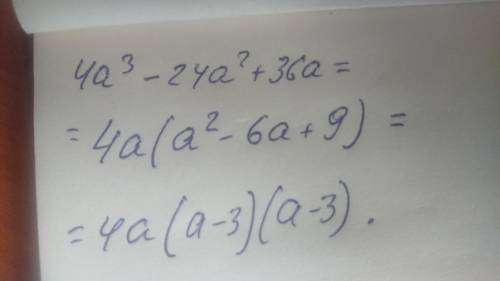 4a³ - 24a² + 36a =
= 4a(a² - 6a + 9) =
= 4a(a-3)(a-3).